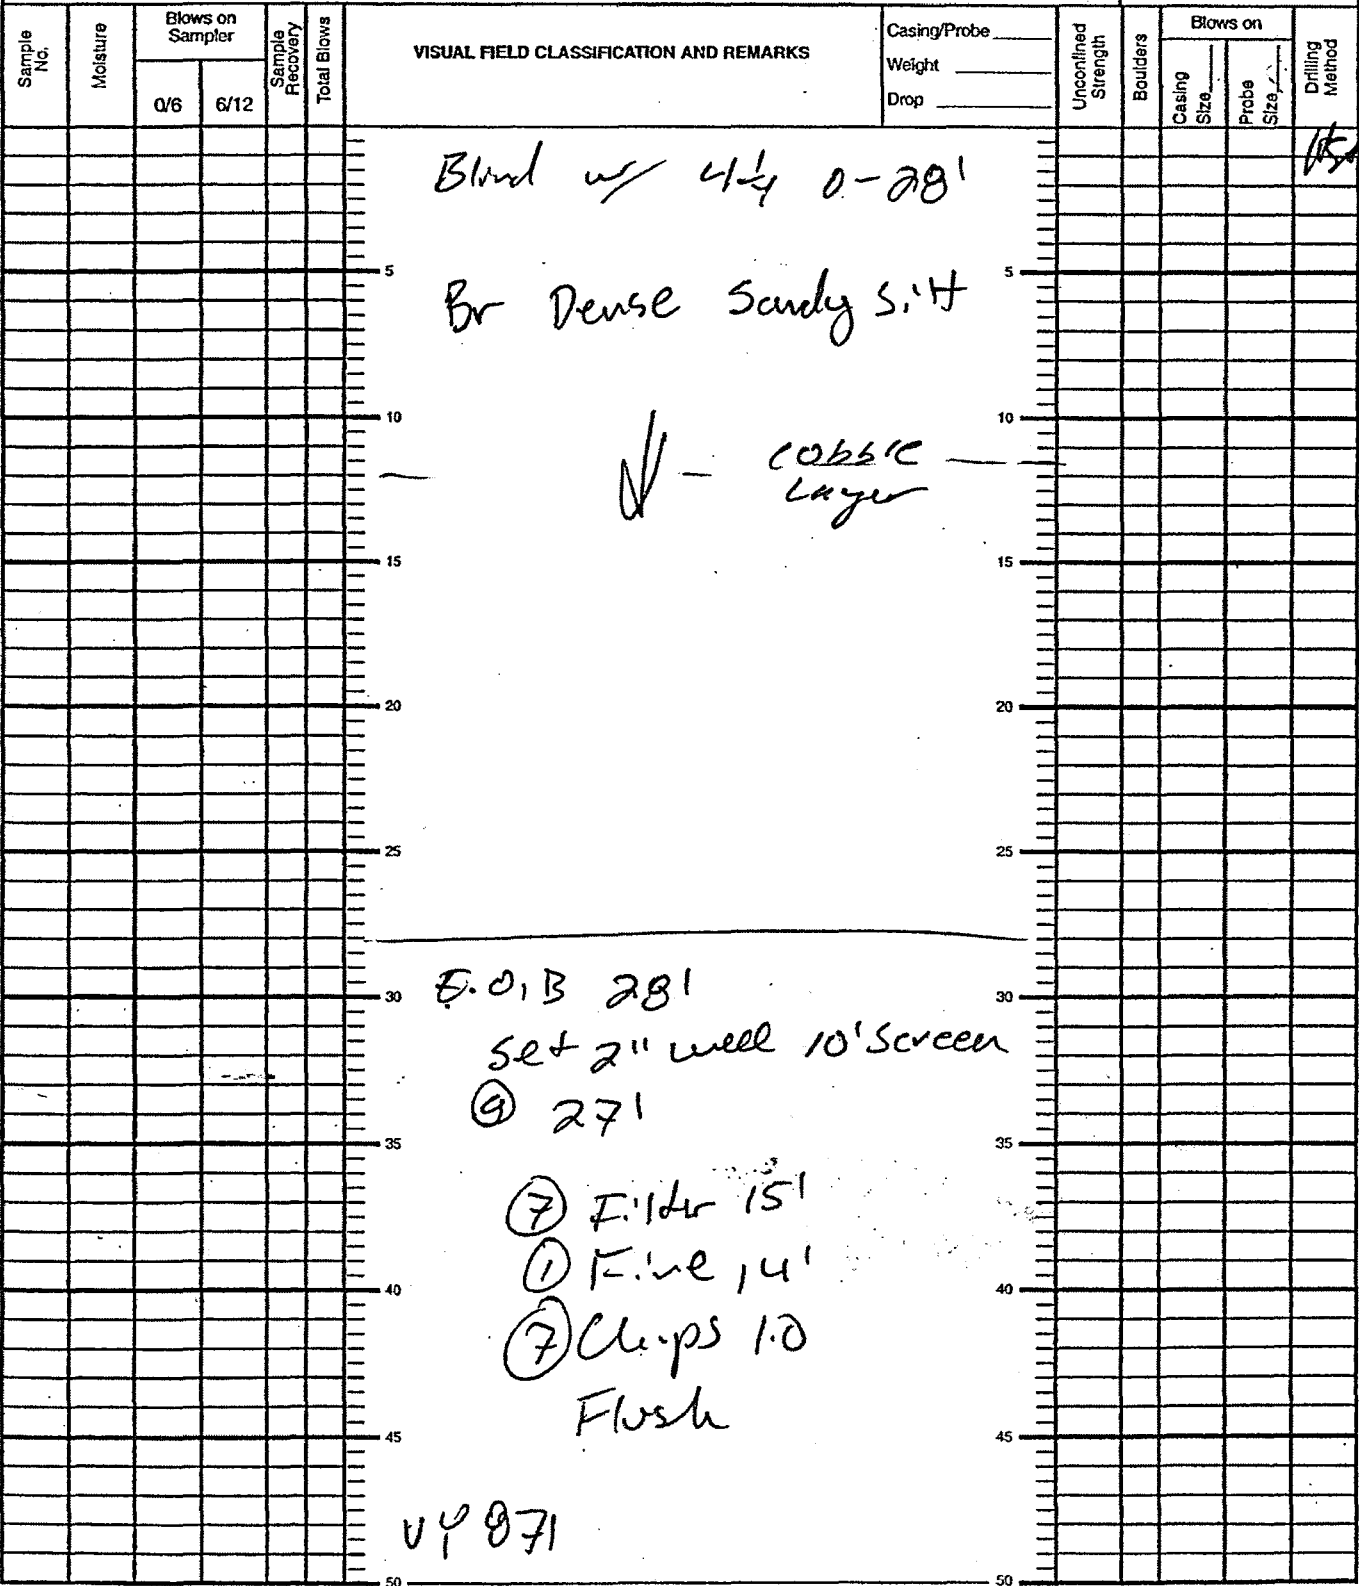 Sample No.
Moisture
Blows on Sampler
0/6
6/12
Sample Recovery
Total Blows
VISUAL FIELD CLASSIFICATION AND REMARKS
Casing/Probe
Weight
Drop
Unconfined Strength
Boulders
Blows on
Casing Size
Probe Size
Drilling Method
Blind w/ 4 1/4 0-28'
5 5
Br Dense Sandy Silt
10 10
cobble
Layer
15 15
20 20
25 25
E.O.B 28'
30 30
Set 2" well 10' Screen
@ 27'
35 35
7 Filter 15'
1 Fine 14'
40 40
7 Chips 1.0
Flush
45 45
871
50 50